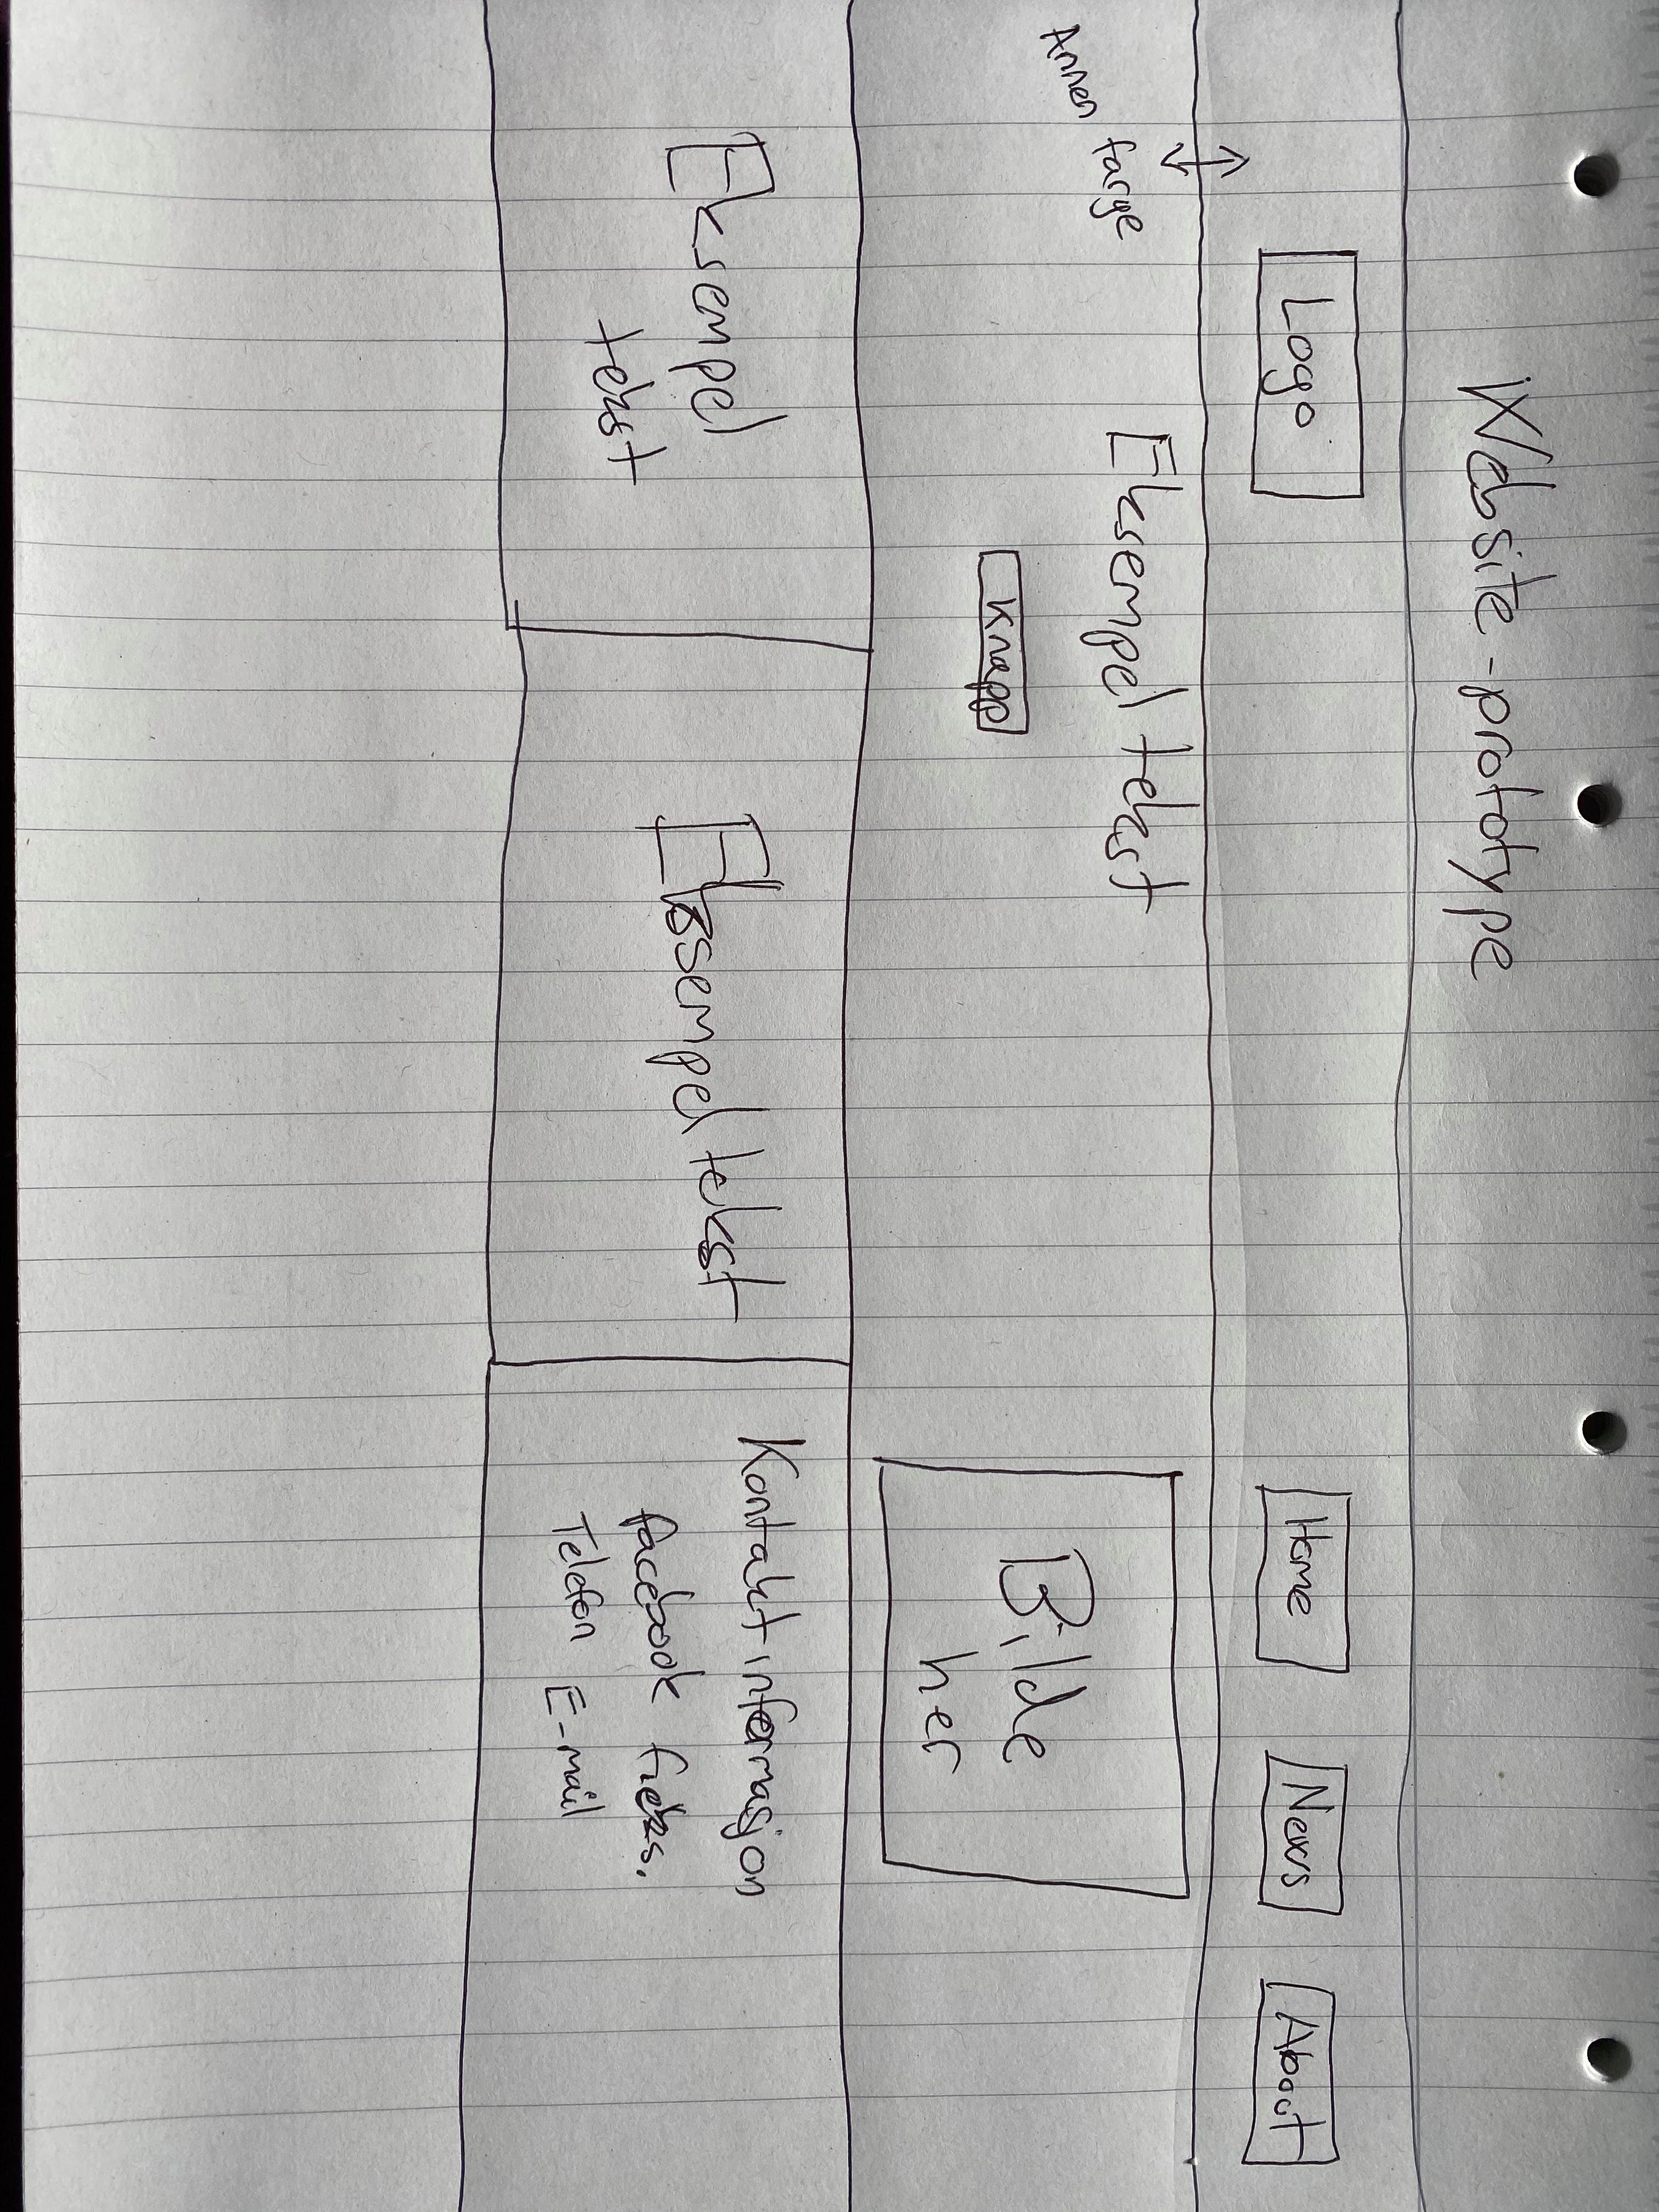 Website-prototype
Logo
Home
News
About
Annen farge
Eksempel tekst
Knapp
Bilde
her
Eksempel
tekst
Eksempel tekst
Kontaktinformasjon
facebook f.eks.
Telefon E-mail